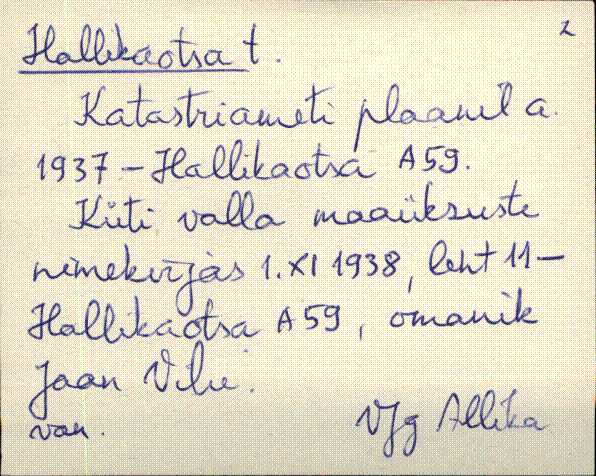 2
Hallikaotsa t.
Katastriameti plaanil a.
1937 – Hallikaotsa A59.
Küti valla maaüksuste
nimekirjas 1. XI 1938, leht 11 –
Hallikaotsa A59, omanik
Jaan
van. VJg Allika